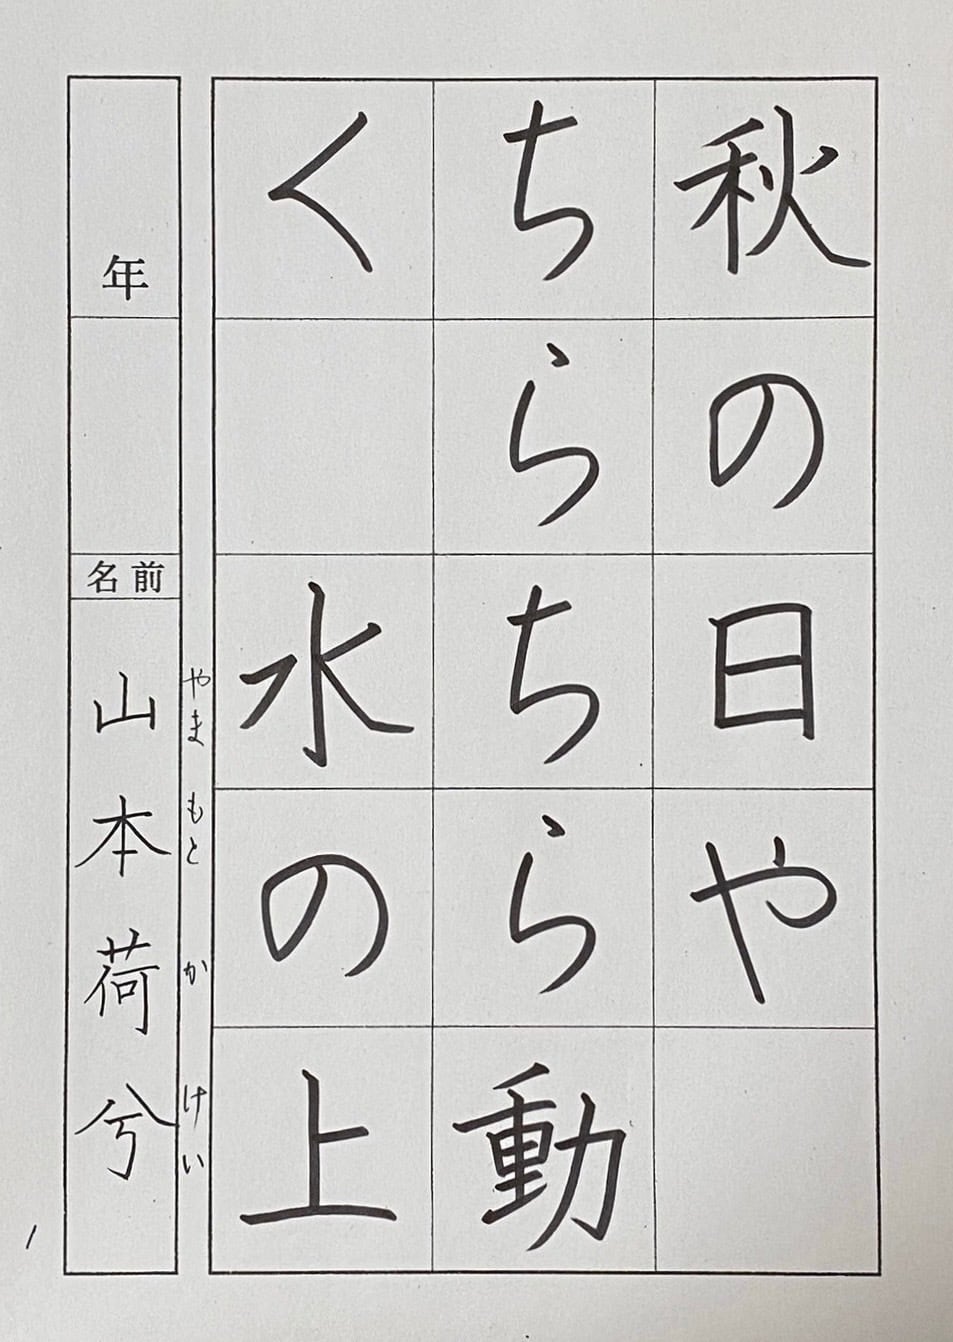 秋の日や
ちらちら動
く水の上
年
名前
山本荷兮
やまもとかけい